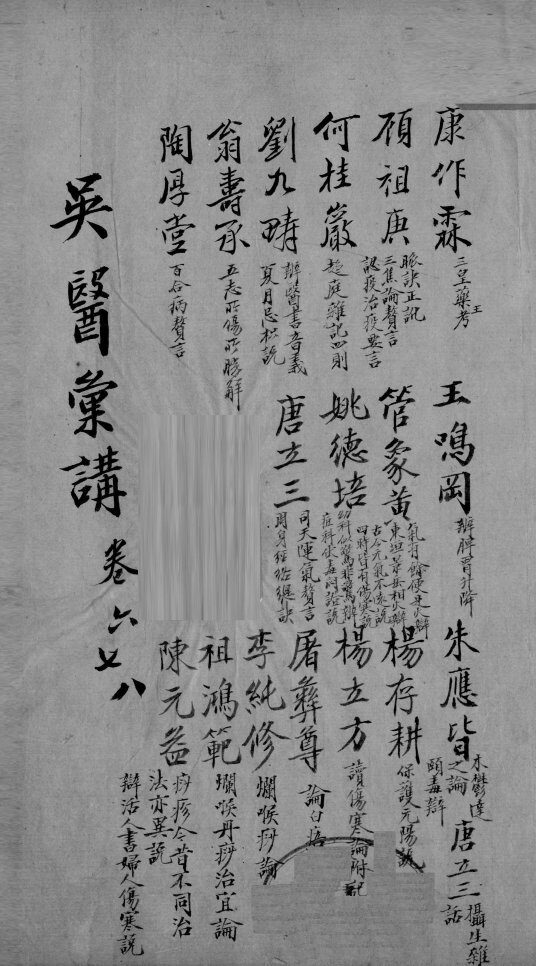 康作霖
三皇藥考
王
顧祖庚
脈訣正訛
三焦論贅言
認疫治疫要言
何桂巖
趨庭雜記四則
劉九疇
辨醫書音義
夏月忌枳說
翁壽承
五志所傷所勝解
陶厚堂
百合病贅言
王鳴岡
辨脾胃升降
管象黃
氣有餘便是火辯
東垣景岳相火辯
古今元氣不
四時皆有傷寒說
姚德培
幼科似驚非驚辨
痘科
唐立三
司天運氣贅言
周身經絡總訣
朱應皆
木鬱達
之論
頤毒辯
唐立三
攝生雜
話
楊存耕
保護元陽說
楊立方
讀傷寒論附記
屠彝尊
論白㾦
李純修
爛喉痧論
祖鴻範
爛喉丹痧治宜論
陳元益
痧疹今昔不同治
法亦異說
辯活人書婦人傷寒說
吳醫彙講
卷六七八